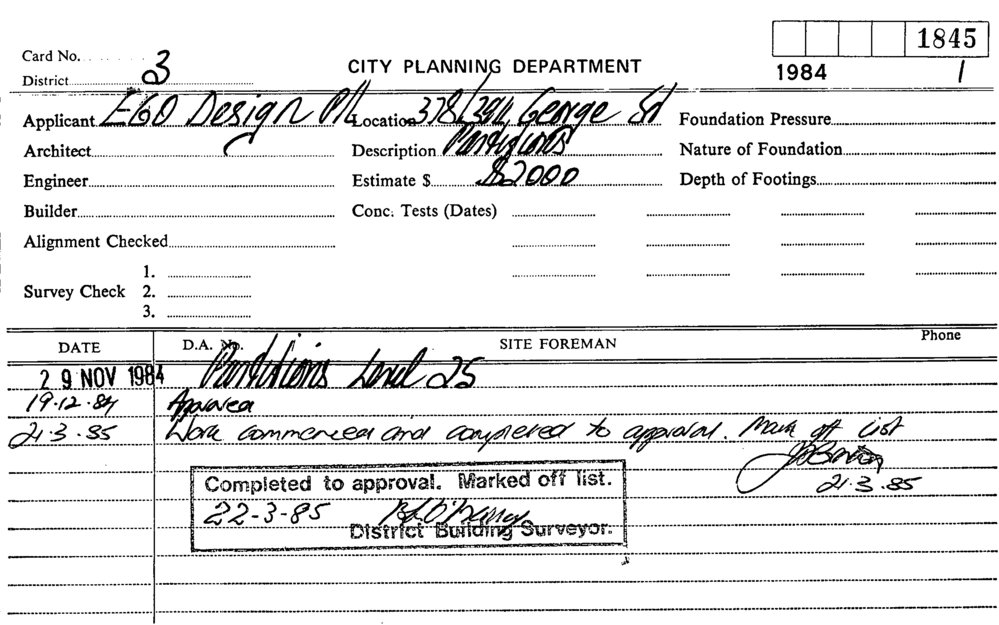 1845
1984 1
Card No.
District 3
CITY PLANNING DEPARTMENT
Applicant EGO Design P/L Location 378/394 George St Foundation Pressure
Architect Description Partitions Nature of Foundation
Engineer Estimate $ $2000 Depth of Footings
Builder Conc. Tests (Dates)
Alignment Checked
1.
Survey Check 2.
3.
DATE D.A. No. SITE FOREMAN Phone
29 NOV 1984 Partitions Level 25
19.12.84 Approved
21.3.85 Work commenced and completed to approval. Mark off list
21.3.85
Completed to approval. Marked off list.
22-3-85
District Building Surveyor.